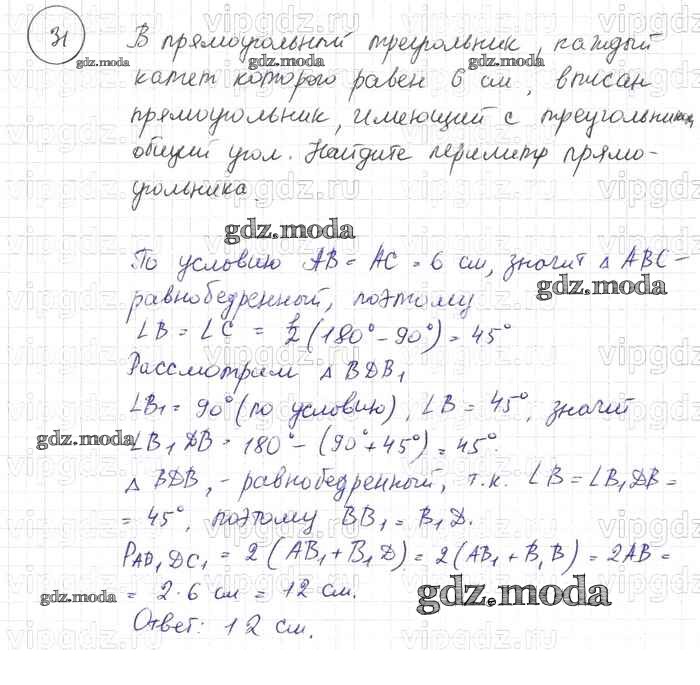 31
В прямоугольный треугольник, каждый
катет которого равен 6 см, вписан
прямоугольник, имеющий с треугольником
общий угол. Найдите периметр прямо-
угольника.
По условию AB = AC = 6 см, значит △ ABC -
равнобедренный, поэтому
∠B = ∠C = 1/2 (180° - 90°) = 45°
Рассмотрим △ BDB₁
∠B₁ = 90° (по условию), ∠B = 45°, значит
∠B₁DB = 180° - (90° + 45°) = 45°.
△ BDB₁ - равнобедренный, т.к. ∠B = ∠B₁DB =
= 45°, поэтому BB₁ = B₁D.
P_AD₁DC₁ = 2 (AB₁ + B₁D) = 2 (AB₁ + B₁B) = 2AB =
= 2 · 6 см = 12 см.
Ответ: 12 см.
gdz.moda
gdz.moda
gdz.moda
gdz.moda
gdz.moda
gdz.moda
gdz.moda
vipgdz.ru